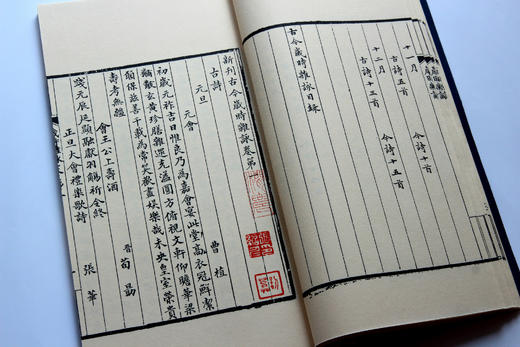 十一月
古詩五首 今詩十首
十二月
古詩十三首 今詩十五首
古今歲時雜詠目錄
新刊古今歲時雜詠卷第
古詩
元旦
元會 曹植
初歲元祚吉日惟良乃為嘉會宴此堂高衣冠鮮潔
黼黻玄黃珍膳雜遝充溢圓方俯視文軒仰瞻華梁
願保茲善千載為常笑歡盡娛樂哉未央皇室榮貴
壽考無疆
會王公上壽酒 晉荀勗
踐元辰延顯融獻羽觴祈令終
正旦大會禮樂歌詩 張華